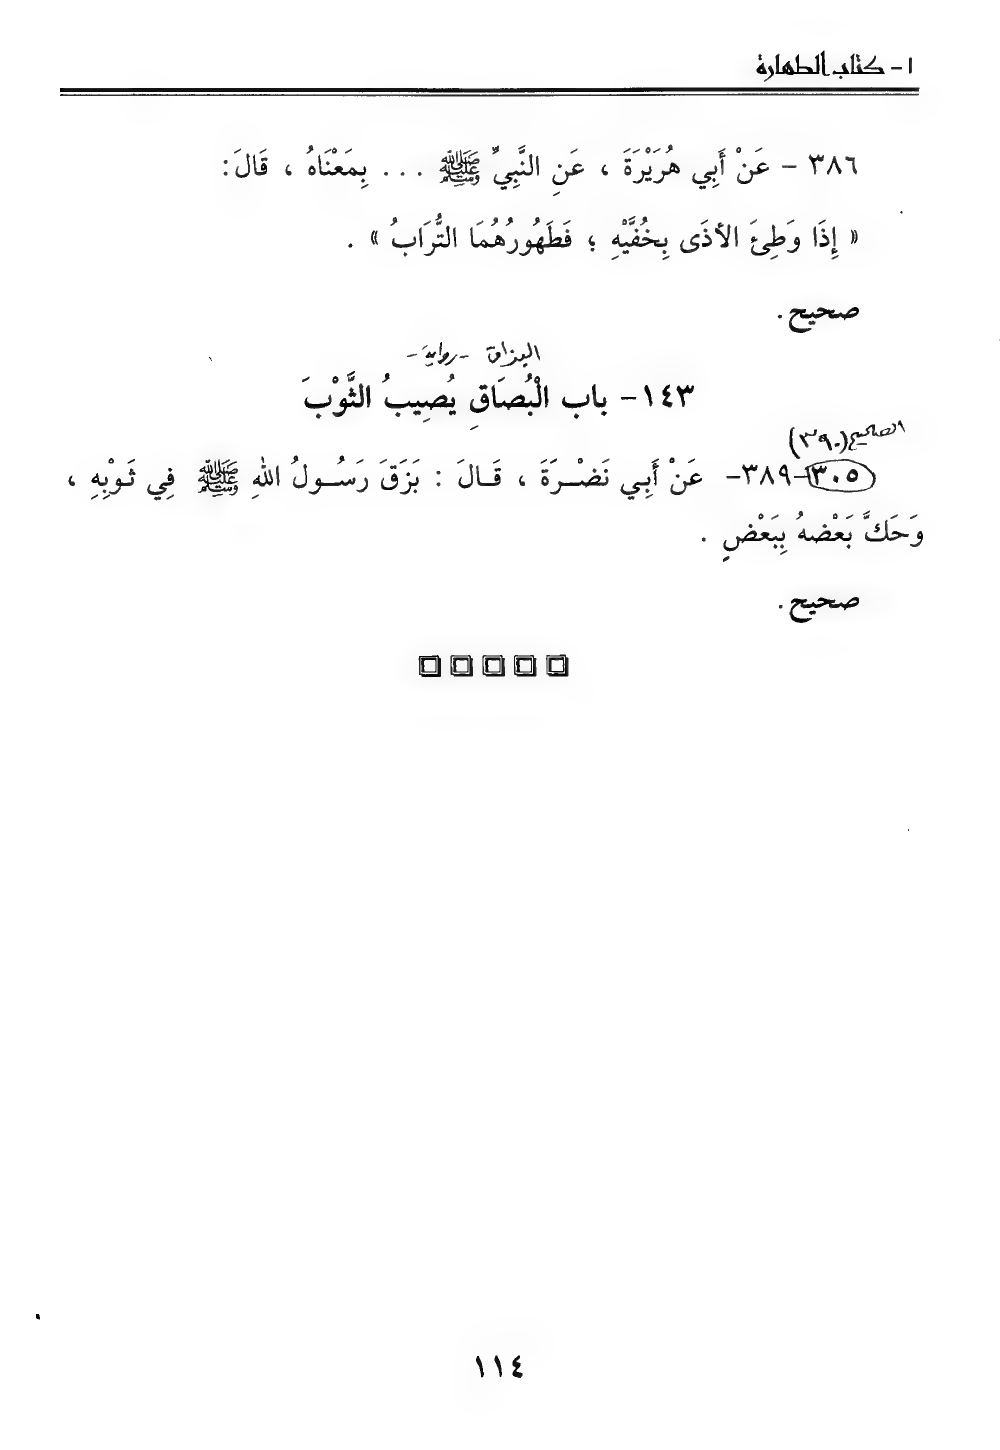 ١ - كتاب الطهارة
٣٨٦ - عَنْ أَبِي هُرَيْرَةَ ، عَنِ النَّبِيِّ ﷺ . . . بِمَعْنَاهُ ، قَالَ :
« إِذَا وَطِئَ الأذَى بِخُفَّيْهِ ؛ فَطَهُورُهُمَا التُّرَابُ » .
صحيح .
البزاق - رواية -
١٤٣ - باب الْبُصَاقِ يُصِيبُ الثَّوْبَ
الصحيح (٣٩٠)
٣٠٥-٣٨٩- عَنْ أَبِي نَضْـرَةَ ، قَـالَ : بَزَقَ رَسُـولُ اللهِ ﷺ فِي ثَـوْبِهِ ،
وَحَكَّ بَعْضَهُ بِبَعْضٍ .
صحيح .
١١٤